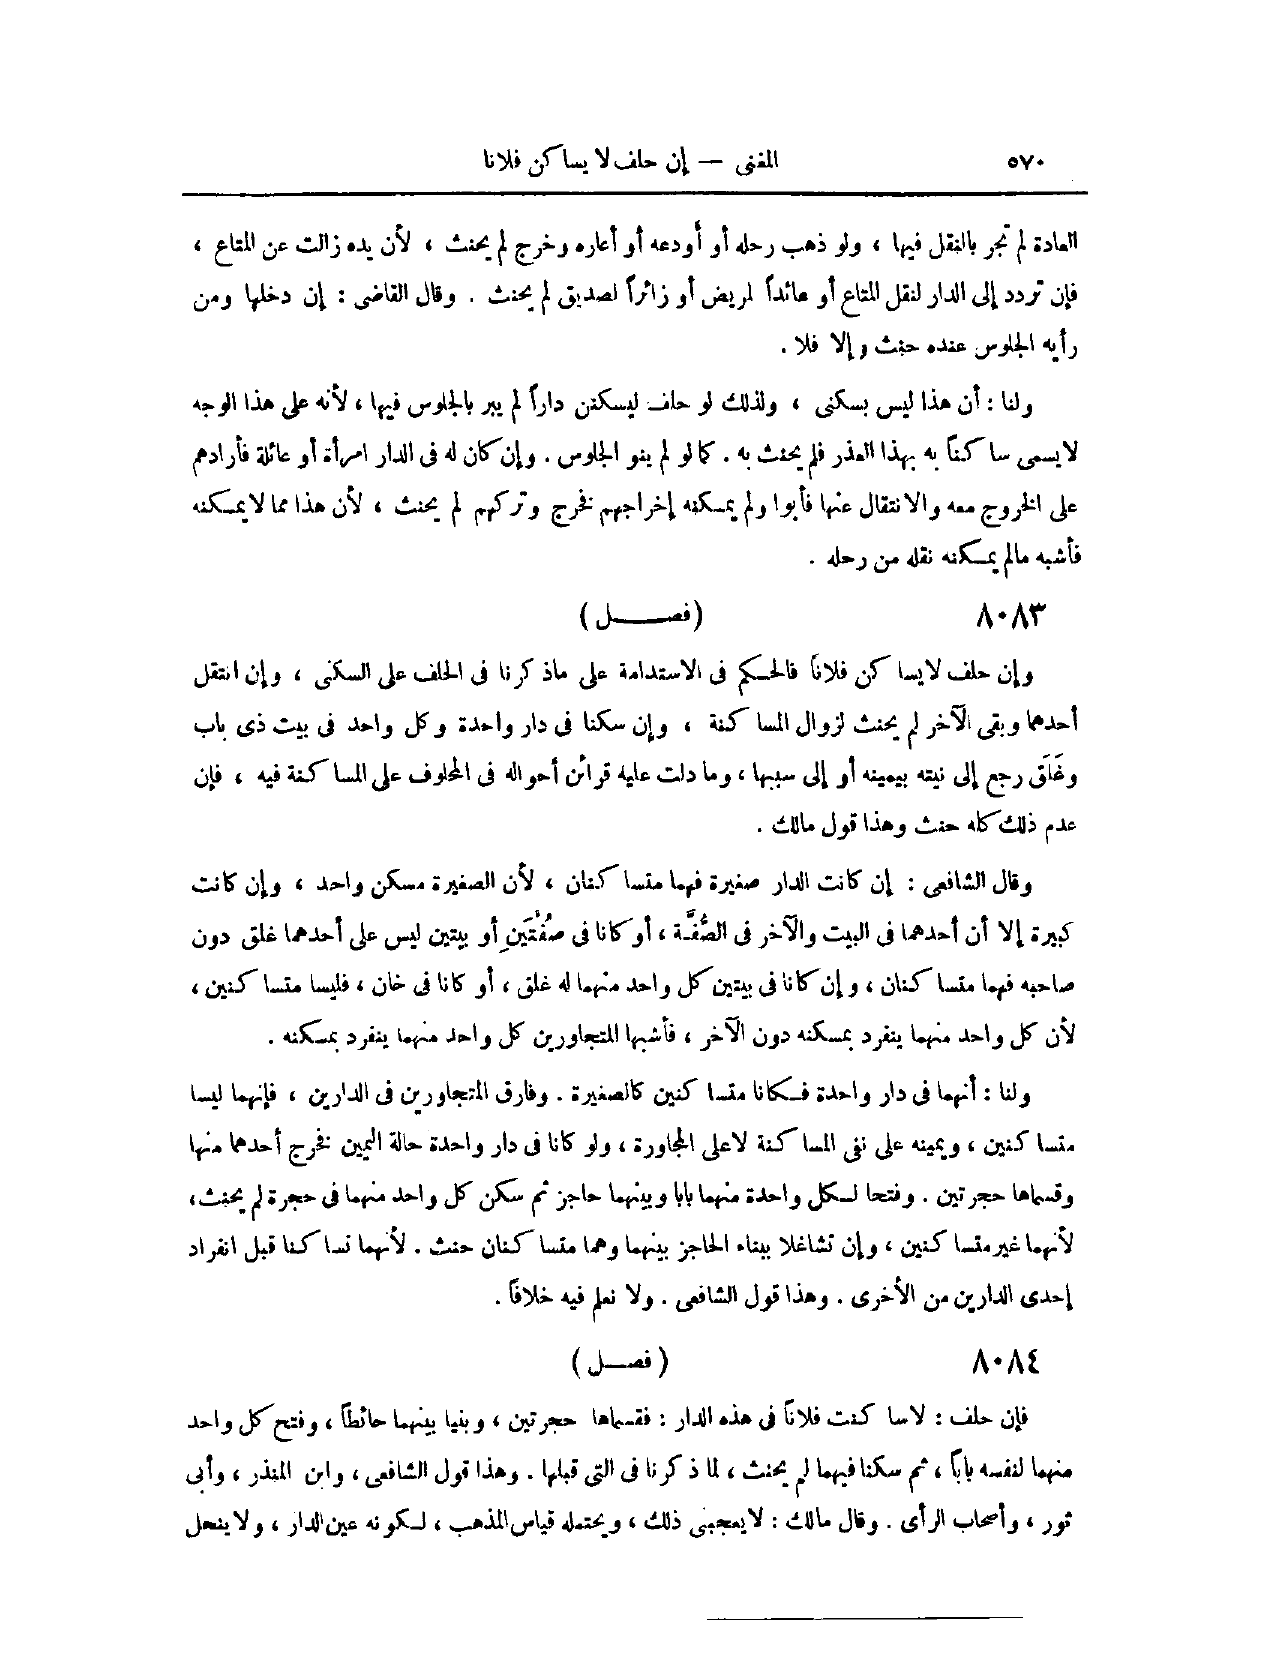 ٥٧٠ المغنى — إن حلف لا يساكن فلانا
العادة لم تجر بالنقل فيها ، ولو ذهب رحله أو أودعه أو أعاره وخرج لم يحنث ، لأن يده زالت عن المتاع ،
فإن تردد إلى الدار لنقل المتاع أو عائداً لمريض أو زائراً لصديق لم يحنث . وقال القاضى : إن دخلها ومن
رأيه الجلوس عنده حنث وإلا فلا .
ولنا : أن هذا ليس بسكنى ، ولذلك لو حلف ليسكنن داراً لم يبر بالجلوس فيها ، لأنه على هذا الوجه
لا يسمى ساكناً به بهذا العذر فلم يحنث به . كما لو لم ينو الجلوس . وإن كان له فى الدار امرأة أو عائلة فأرادهم
على الخروج معه والانتقال عنها فأبوا ولم يمكنه إخراجهم فخرج وتركهم لم يحنث ، لأن هذا مما لا يمكنه
فأشبه مالم يمكنه نقله من رحله .
٨٠٨٣ (فصل)
وإن حلف لا يساكن فلاناً فالحكم فى الاستدامة على ماذكرنا فى الحلف على السكنى ، وإن انتقل
أحدهما وبقى الآخر لم يحنث لزوال المساكنة ، وإن سكنا فى دار واحدة وكل واحد فى بيت ذى باب
وغَلَق رجع إلى نيته بيمينه أو إلى سببها ، وما دلت عليه قرائن أحواله فى المحلوف على المساكنة فيه ، فإن
عدم ذلك كله حنث وهذا قول مالك .
وقال الشافعى : إن كانت الدار صغيرة فهما متساكنان ، لأن الصغيرة مسكن واحد ، وإن كانت
كبيرة إلا أن أحدهما فى البيت والآخر فى الصُّفَّة ، أو كانا فى صُفَّتَينِ أو بيتين ليس على أحدهما غلق دون
صاحبه فهما متساكنان ، وإن كانا فى بيتين كل واحد منهما له غلق ، أو كانا فى خان ، فليسا متساكنين ،
لأن كل واحد منهما ينفرد بمسكنه دون الآخر ، فأشبها المتجاورين كل واحد منهما ينفرد بمسكنه .
ولنا : أنهما فى دار واحدة فكانا متساكنين كالصغيرة . وفارق المتجاورين فى الدارين ، فإنهما ليسا
متساكنين ، ويمينه على نفى المساكنة لاعلى المجاورة ، ولو كانا فى دار واحدة حالة اليمين فخرج أحدهما منها
وقسماها حجرتين . وفتحا لكل واحدة منهما بابا وبينهما حاجز ثم سكن كل واحد منهما فى حجرة لم يحنث ،
لأنهما غير متساكنين ، وإن تشاغلا ببناء الحاجز بينهما وهما متساكنان حنث . لأنهما تساكنا قبل انفراد
إحدى الدارين من الأخرى . وهذا قول الشافعى . ولا نعلم فيه خلافاً .
٨٠٨٤ (فصل)
فإن حلف : لاساكنت فلاناً فى هذه الدار : فقسماها حجرتين ، وبنيا بينهما حائطاً ، وفتح كل واحد
منهما لنفسه باباً ، ثم سكنا فيهما لم يحنث ، لما ذكرنا فى التى قبلها . وهذا قول الشافعى ، وابن المنذر ، وأبى
ثور ، وأصحاب الرأى . وقال مالك : لا يعجبنى ذلك ، ويحتمله قياس المذهب ، لكونه عين الدار ، ولا ينحل